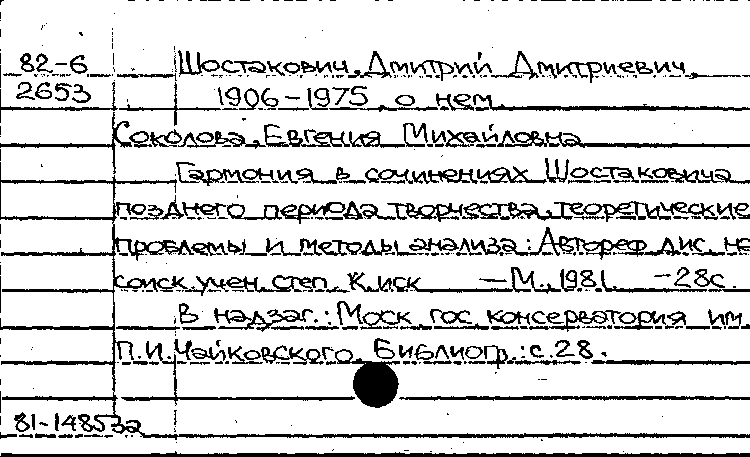 82-6 Шостакович, Дмитрий Дмитриевич,
2653 1906-1975, о нем.
Соколова, Евгения Михайловна
Гармония в сочинениях Шостаковича
позднего периода творчества, теоретические
проблемы и методы анализа: Автореф. дис. на
соиск. учен. степ. К. иск — М., 1981. - 28с.
В надзаг.: Моск. гос. консерватория им.
П.И. Чайковского. Библиогр.: с. 28.
81-14853а